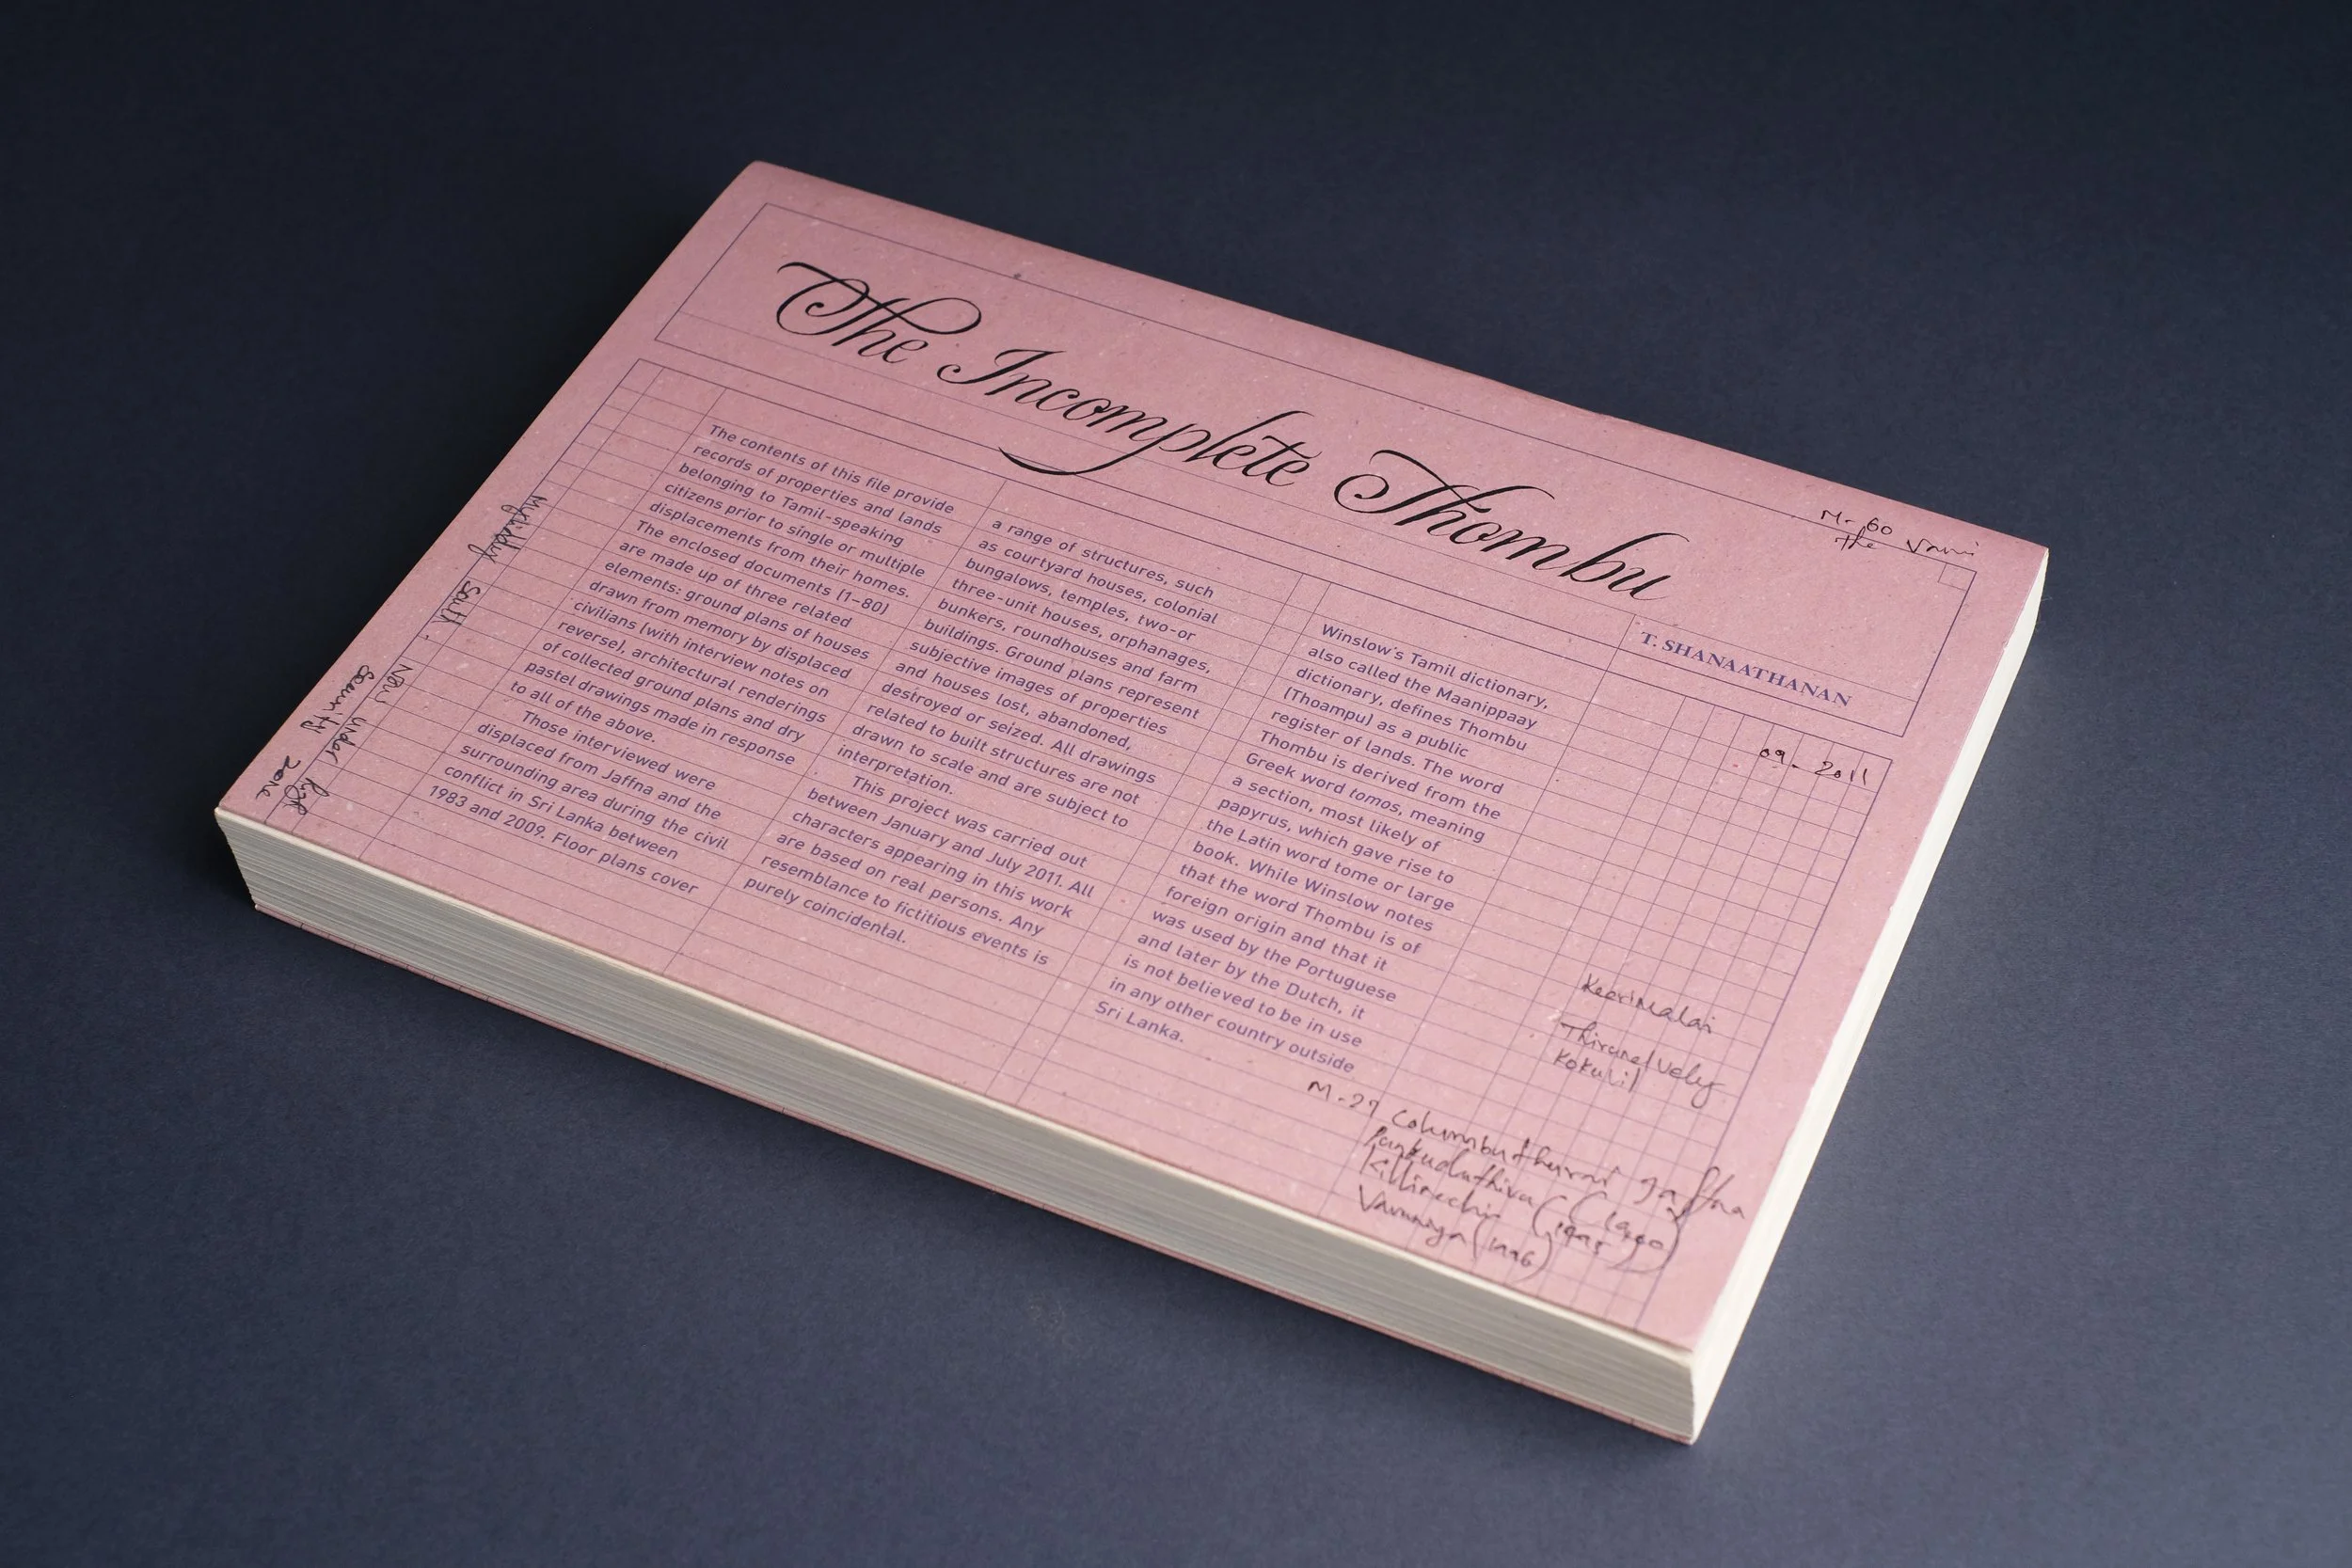 The Incomplete Thombu
T. SHANAATHANAN
The contents of this file provide
records of properties and lands
belonging to Tamil-speaking
citizens prior to single or multiple
displacements from their homes.
The enclosed documents (1–80)
are made up of three related
elements: ground plans of houses
drawn from memory by displaced
civilians (with interview notes on
reverse), architectural renderings
of collected ground plans and dry
pastel drawings made in response
to all of the above.
Those interviewed were
displaced from Jaffna and the
surrounding area during the civil
conflict in Sri Lanka between
1983 and 2009. Floor plans cover
a range of structures, such
as courtyard houses, colonial
bungalows, temples, two-or
three-unit houses, orphanages,
bunkers, roundhouses and farm
buildings. Ground plans represent
subjective images of properties
and houses lost, abandoned,
destroyed or seized. All drawings
related to built structures are not
drawn to scale and are subject to
interpretation.
This project was carried out
between January and July 2011. All
characters appearing in this work
are based on real persons. Any
resemblance to fictitious events is
purely coincidental.
Winslow's Tamil dictionary,
also called the Maanippaay
dictionary, defines Thombu
(Thoampu) as a public
register of lands. The word
Thombu is derived from the
Greek word tomos, meaning
a section, most likely of
papyrus, which gave rise to
the Latin word tome or large
book. While Winslow notes
that the word Thombu is of
foreign origin and that it
was used by the Portuguese
and later by the Dutch, it
is not believed to be in use
in any other country outside
Sri Lanka.
M-60
the
09-2011
Keerimalai
Thirunelvely
Kokuvil
M-29 Columbuthurai Jaffna
(1990)
Killinochi (1995)
Vavuniya (1996)
South.
Now under high
Security zone